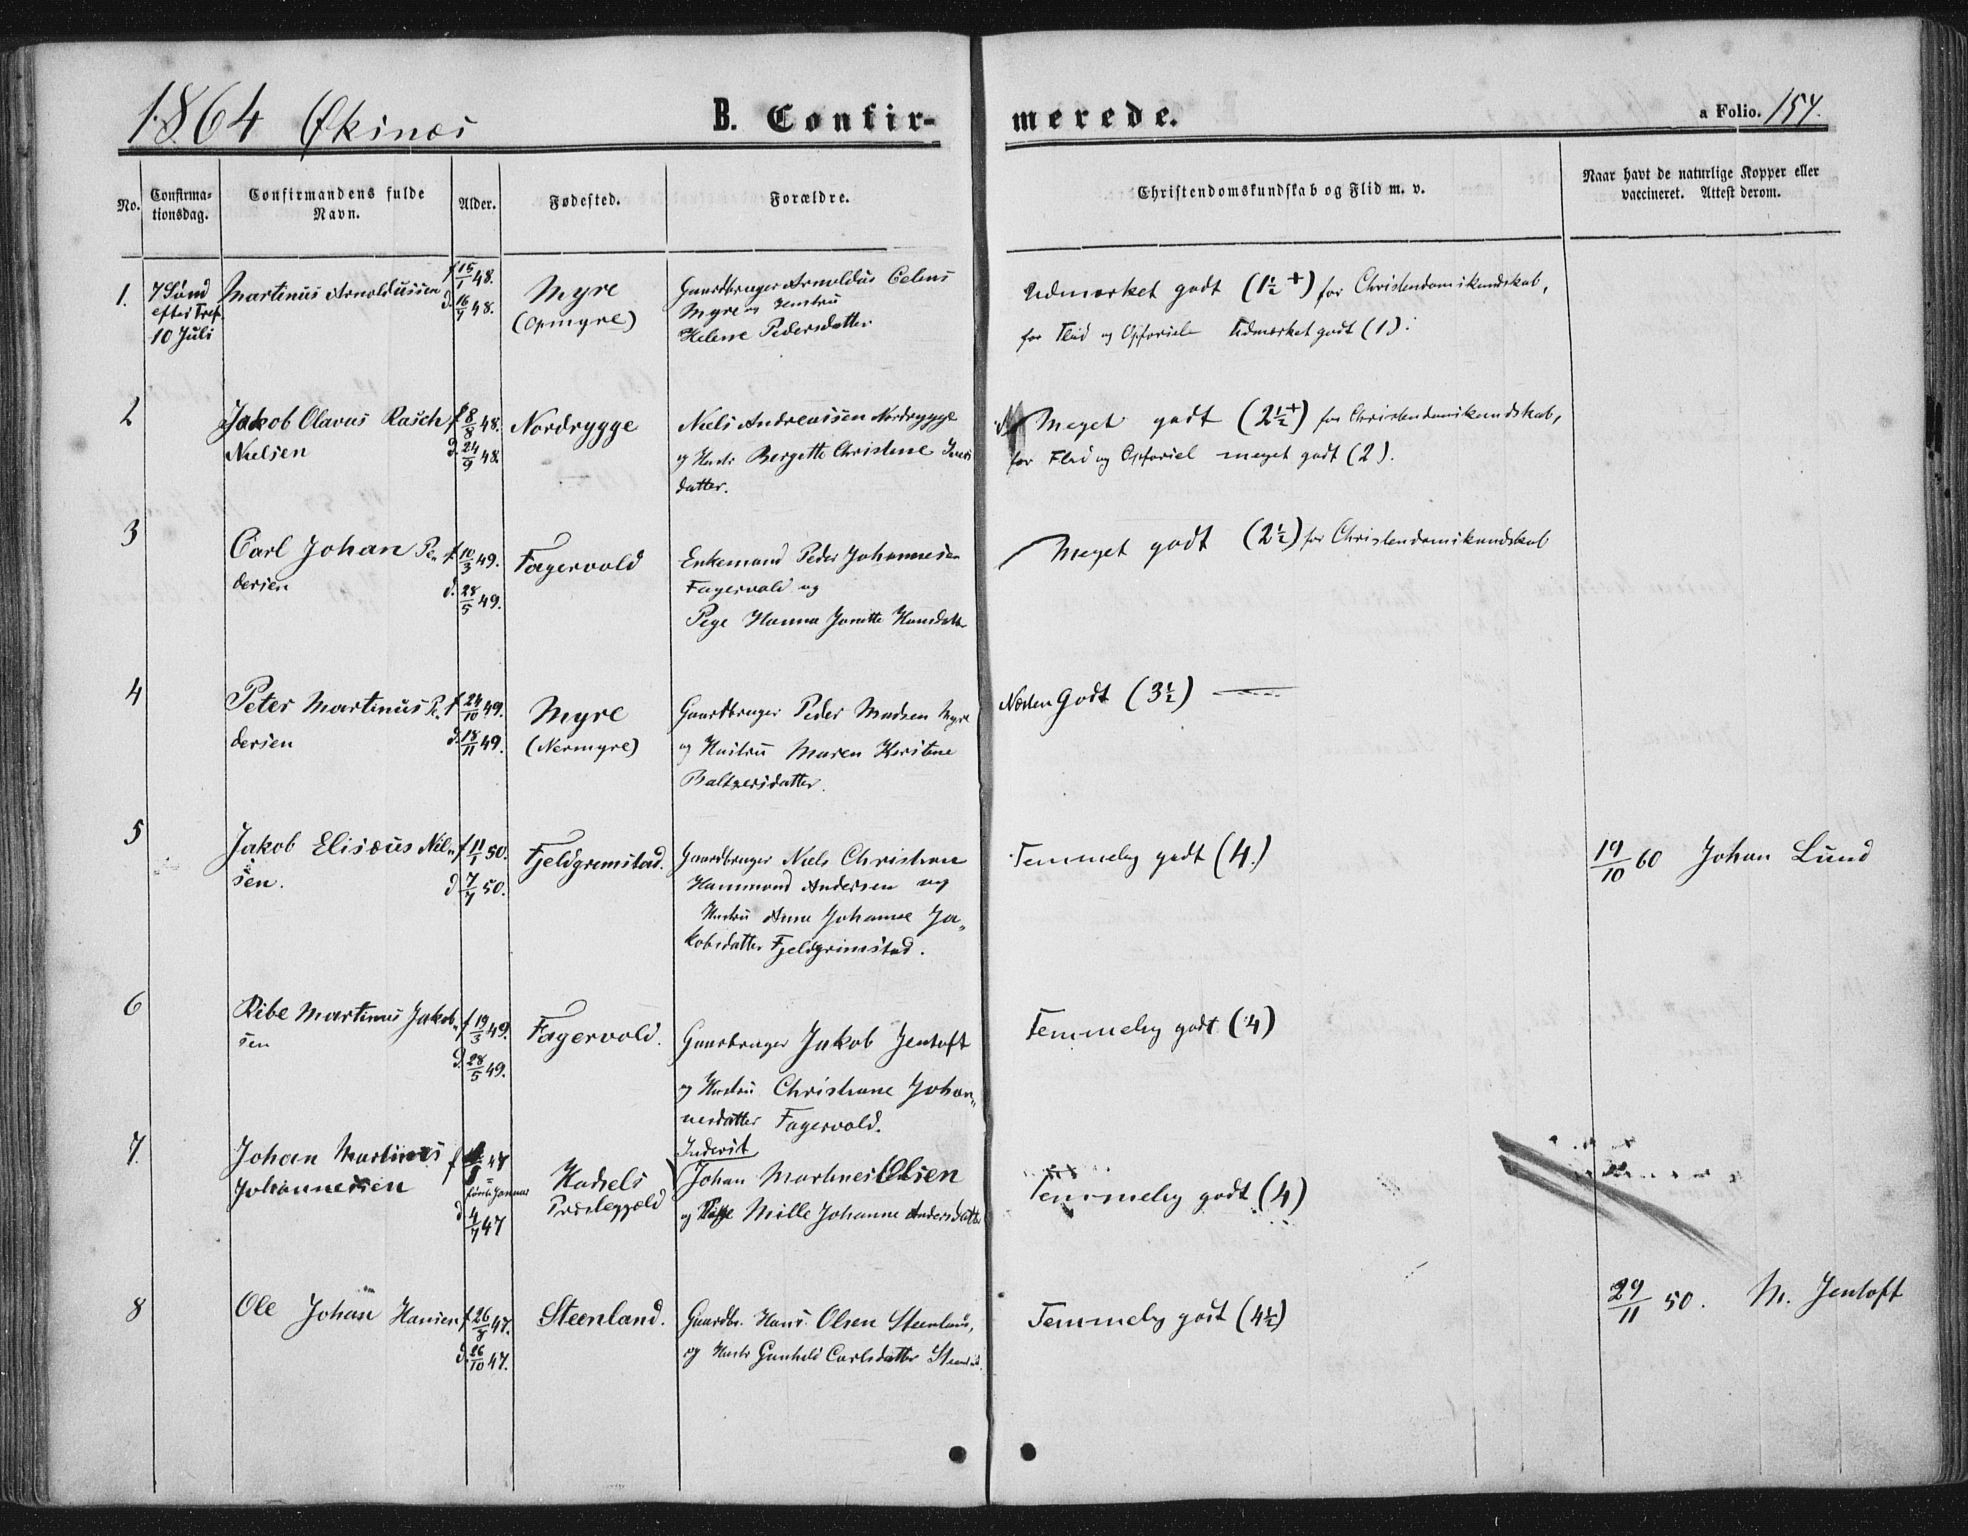 1864 Øksnes B. Confir- merede. a Folio. 154.
No. Confirma-tionsdag. Confirmandens fulde Navn. Alder. Fødested. Forældre. Christendomskundskab og Flid m. v. Naar havt de naturlige Kopper eller vaccineret. Attest derom.
1. 7 Sønd Martinus Arnoldussen f 15/1 48. Myre Gaardbruger Arnoldus Udmærket godt (1½+) for Christendomskundskab,
efter Tref. d. 16/4 48. (Opmyre) Myre og Hustru for Flid og Opførsel Udmærket godt (1).
10 Juli Helene Pedersdatter
2 Jakob Olavus Rasch f 8/8 48. Nordrygge Niels Andreassen Nordrygge Meget godt (2½+) for Christendomskundskab,
Nielsen d. 24/9 48. og Hustr Bergette Christine for Flid og Opførsel meget godt (2).
datter.
3 Carl Johan Pe f 10/3 49. Fagervold Enkemand Peder Johannesen Meget godt (2½) for Christendomskundskab
dersen d. 28/5 49. Fagervold og
Pige Hanna
4 Peter Martinus Pe f 24/10 49. Myre Gaardbruger Peder Madsen Myre Næsten Godt (3½)
dersen d. 18/11 49. (Nermyre) og Hustru Maren Kirstine
Baltzersdatter.
5 Jakob Elisæus Niel f 11/1 50. Fjeldgrimstad. Gaardbruger Niels Christian Temmelig godt (4.) 19/10 60 Johan Lund
sen. d 7/7 50. Hammond Andersen og
Hustru Anne Johanne Ja„
kobsdatter Fjeldgrimstad.
6 Ribe Martinus Jakob„ f 19/3 49. Fagervold. Gaarbruger Jakob Jentoft Temmelig godt (4)
sen d. 28/5 49. og Hustru Christiane Johan„
nesdatter Fagervold.
7. Johan Martinus f 47 Hadsels Inderst Johan Martines Olsen Temmelig godt (4)
Johannesen d 4/7 47 Præstegjeld og Pige Mille Johanne Andersdatter
8 Ole Johan Hansen f 26/8 47. Steenland. Gaardbr. Hans Olsen Temmelig godt (4½) 29/11 50. M. Jentoft
d. 26/10 47. og Hustr Gunhild Carlsdatter